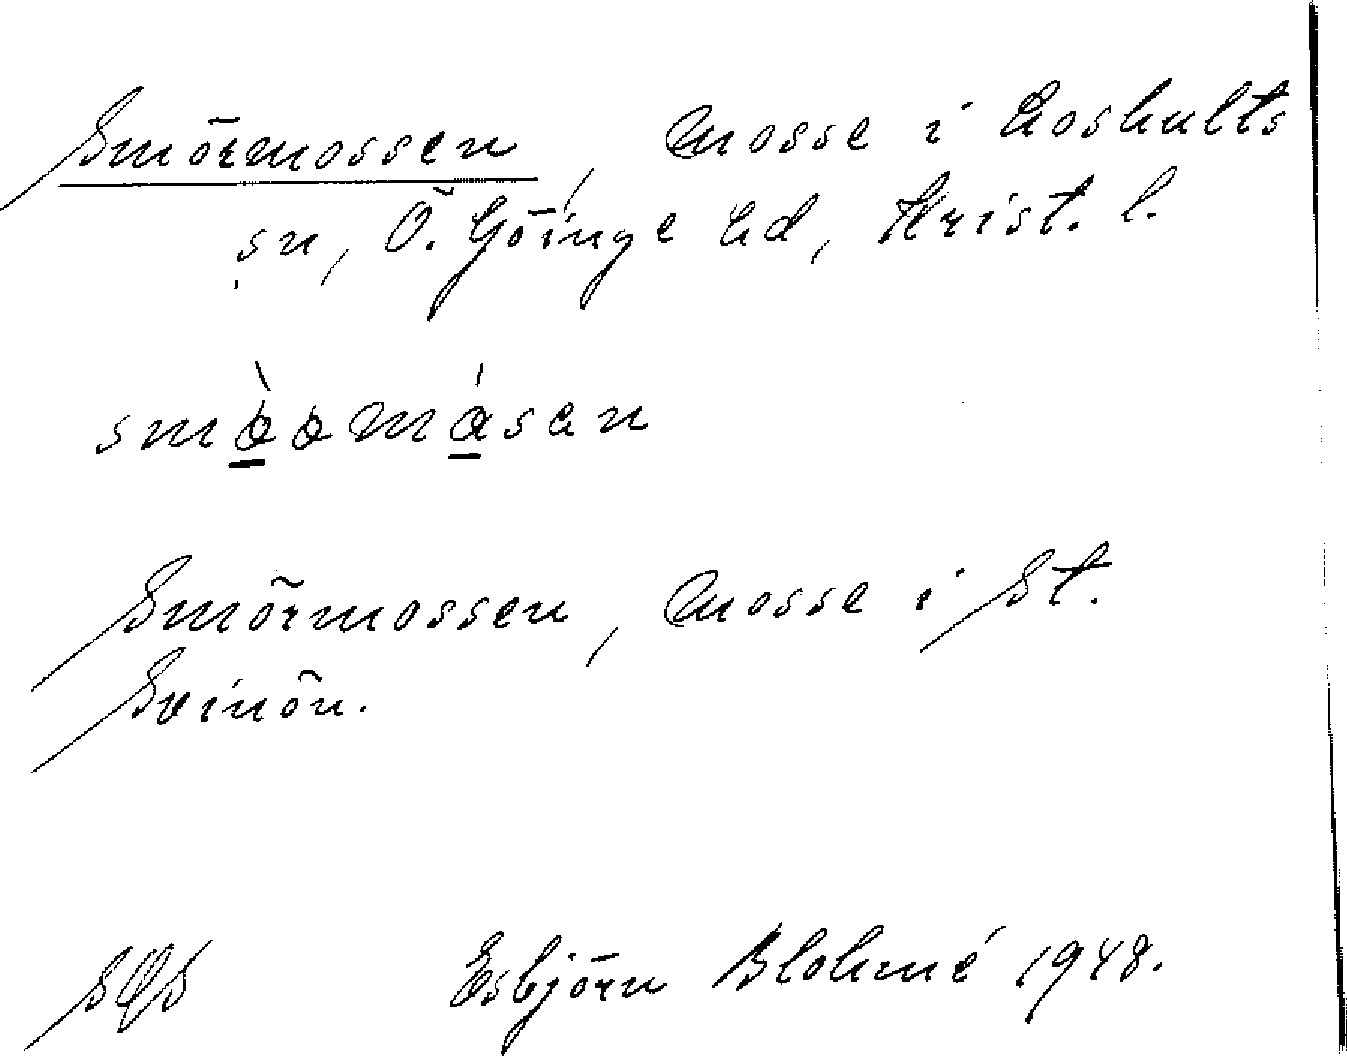 Smörmossen, mosse i Loshults
sn, Ö. Göinge hd, Krist. l.
Smörmossen, mosse i St.
Svinön.
Esbjörn Blohmé 1948.